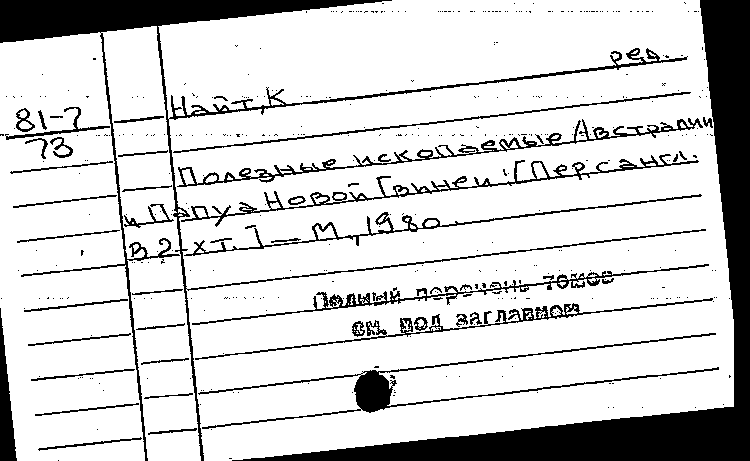 ред.
81-7
73
Найт, К
Полезные ископаемые Австралии
и Папуа Новой Гвинеи: [Пер. с англ.
В 2-х т.] — М., 1980.
Полный перечень томов
см. под заглавием